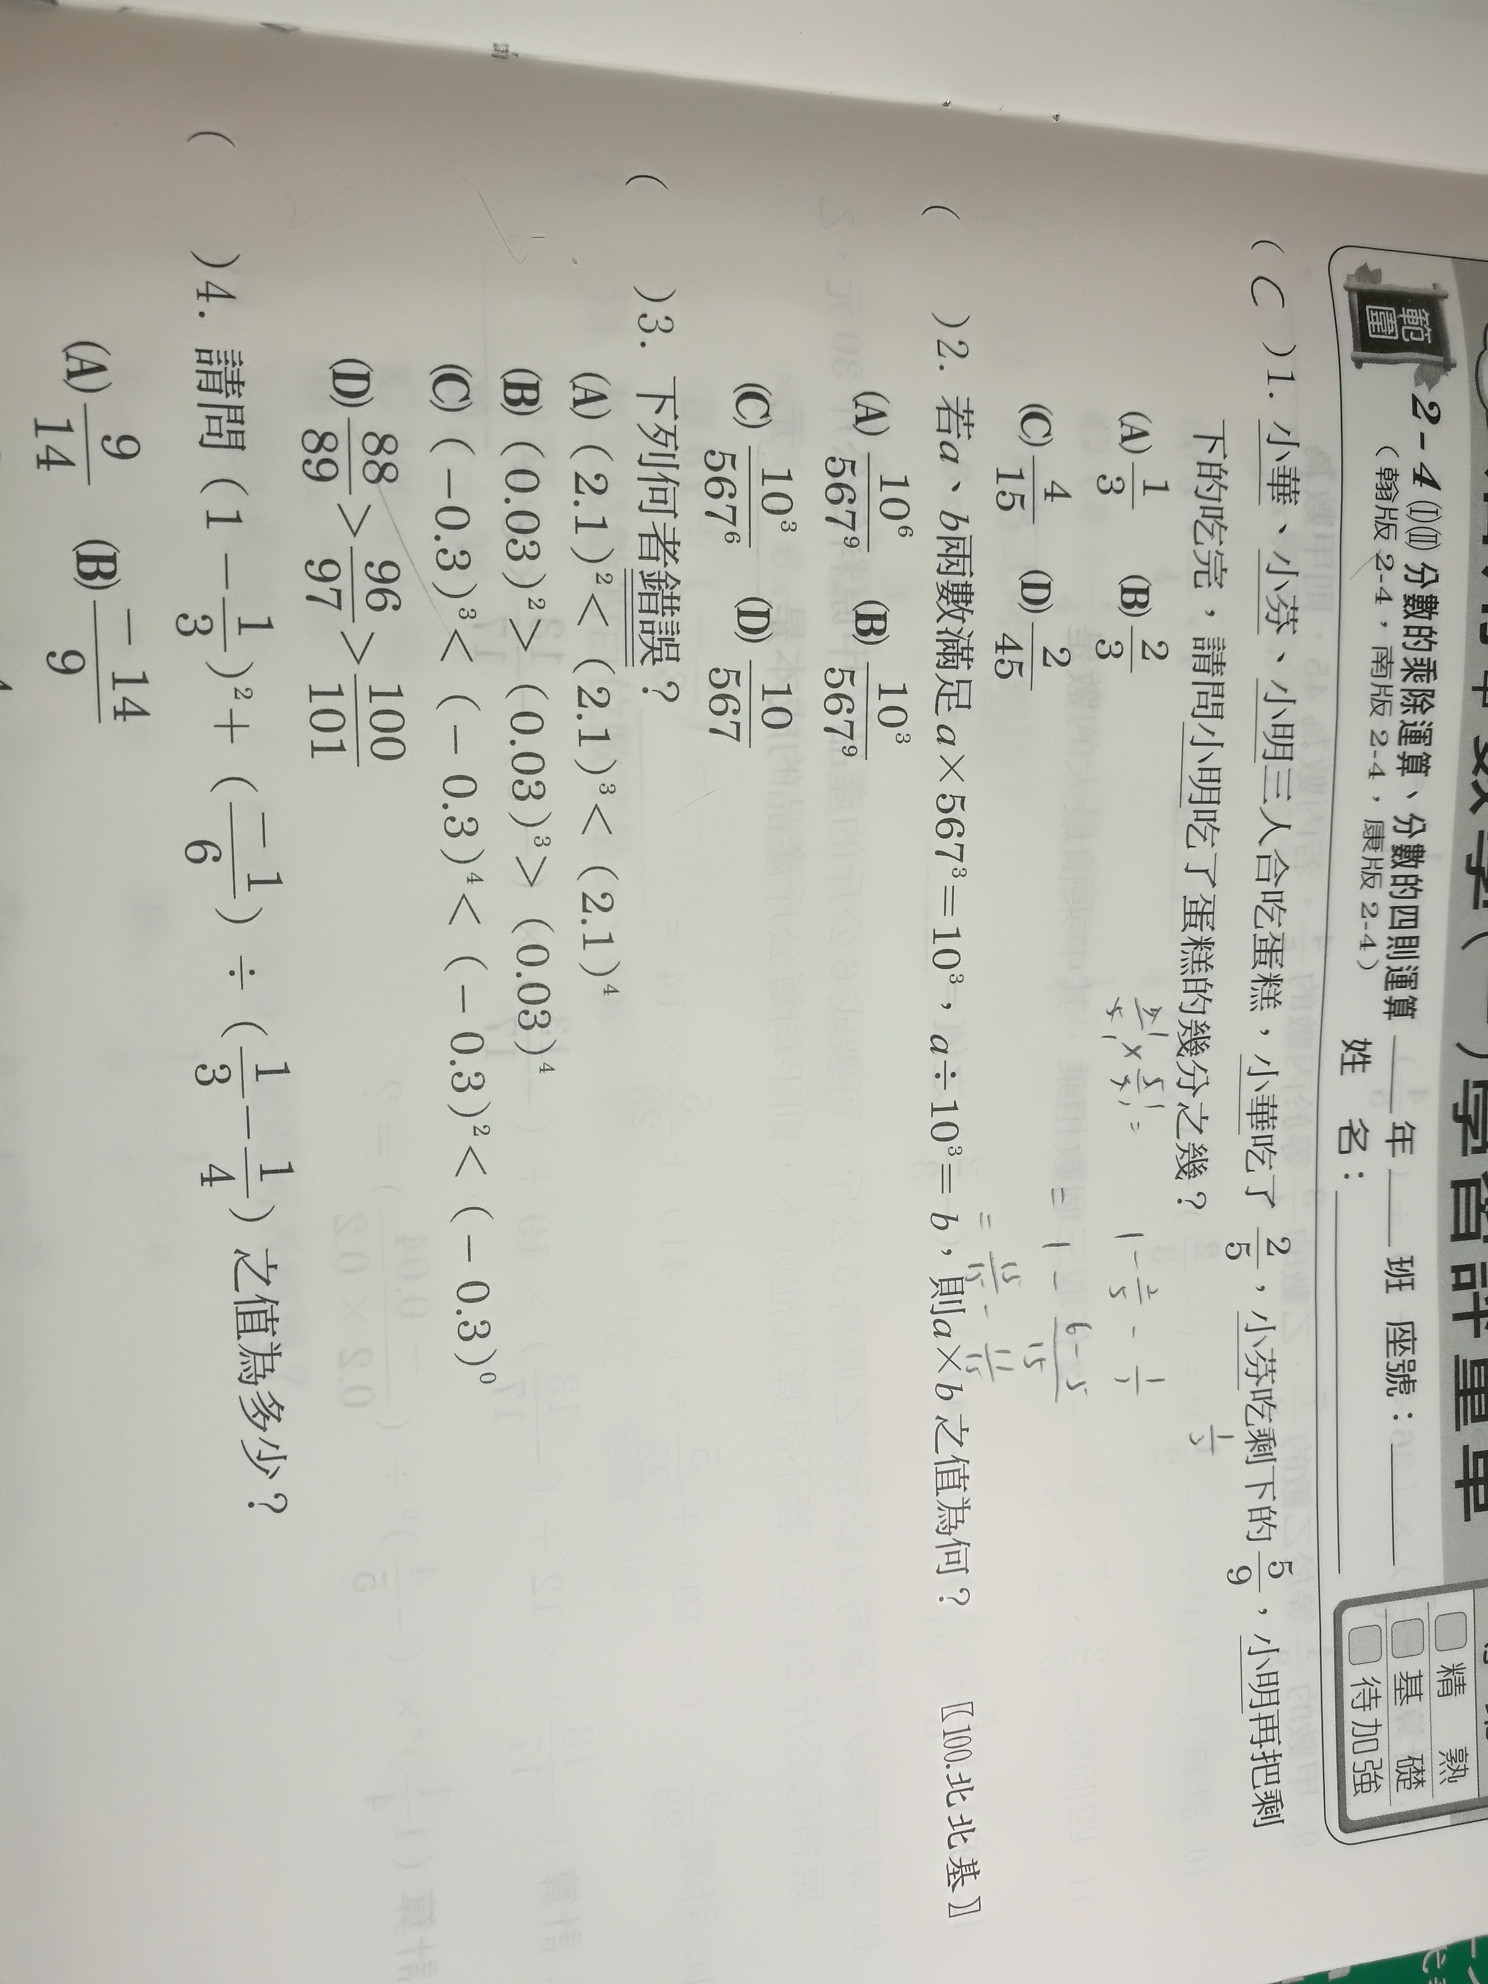 範圍
2-4(I)(II) 分數的乘除運算、分數的四則運算 ＿＿年＿＿班 座號：＿＿
（翰版 2-4，南版 2-4，康版 2-4） 姓 名：＿＿＿＿
精 熟
基 礎
待加強
( C )1. 小華、小芬、小明三人合吃蛋糕，小華吃了 2/5，小芬吃剩下的 5/9，小明再把剩
下的吃完，請問小明吃了蛋糕的幾分之幾？
(A) 1/3 (B) 2/3
(C) 4/15 (D) 2/45
1 - 2/5 - 1/3
= 1 - (6-5)/15
= 15/15 - 11/15
( )2. 若a、b兩數滿足a×567³=10³，a÷10³=b，則a×b之值為何？ 〖100.北北基〗
(A) 10⁶/567⁹ (B) 10³/567⁹
(C) 10³/567⁶ (D) 10/567
( )3. 下列何者錯誤？
(A)（2.1）²<（2.1）³<（2.1）⁴
(B)（0.03）²>（0.03）³>（0.03）⁴
(C)（-0.3）³<（-0.3）⁴<（-0.3）²<（-0.3）⁰
(D) 88/89 > 96/97 > 100/101
( )4. 請問（1 - 1/3）²+（-1/6）÷（1/3 - 1/4）之值為多少？
(A) 9/14 (B) -14/9